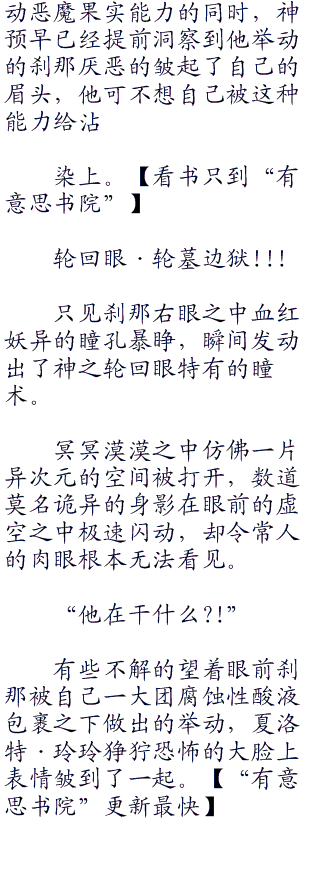 动恶魔果实能力的同时，神
预早已经提前洞察到他举动
的刹那厌恶的皱起了自己的
眉头，他可不想自己被这种
能力给沾
染上。【看书只到“有
意思书院”】
轮回眼·轮墓边狱!!!
只见刹那右眼之中血红
妖异的瞳孔暴睁，瞬间发动
出了神之轮回眼特有的瞳
术。
冥冥漠漠之中仿佛一片
异次元的空间被打开，数道
莫名诡异的身影在眼前的虚
空之中极速闪动，却令常人
的肉眼根本无法看见。
“他在干什么?!”
有些不解的望着眼前刹
那被自己一大团腐蚀性酸液
包裹之下做出的举动，夏洛
特·玲玲狰狞恐怖的大脸上
表情皱到了一起。【“有意
思书院”更新最快】